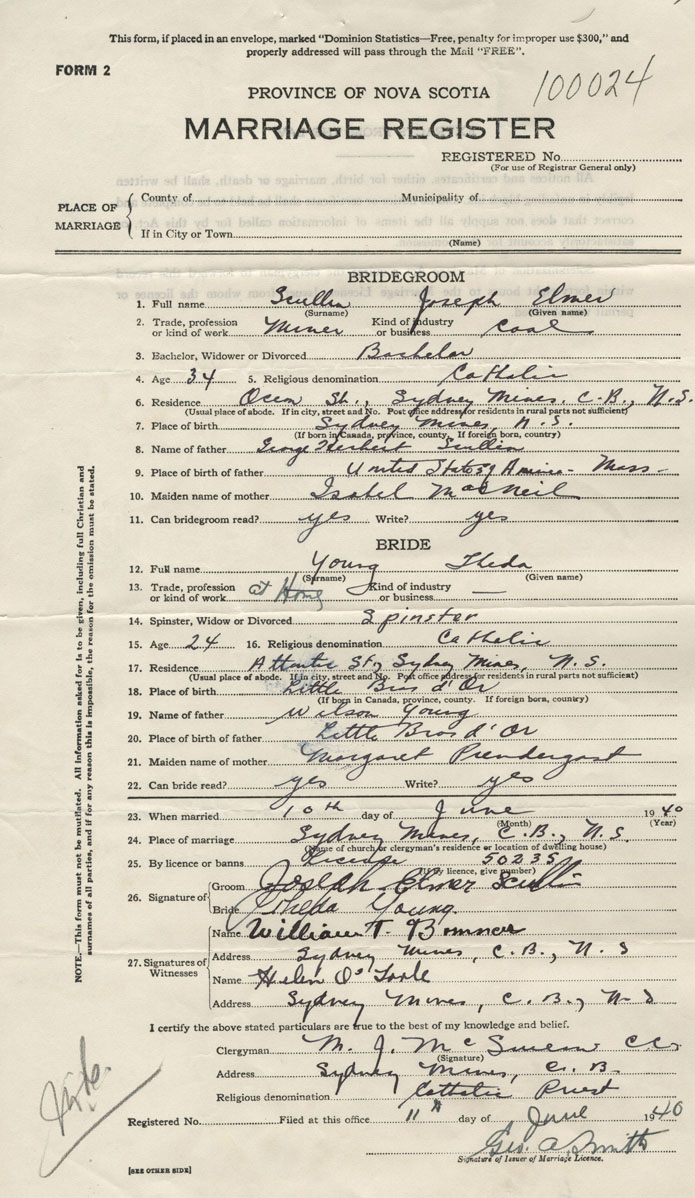 This form, if placed in an envelope, marked "Dominion Statistics—Free, penalty for improper use $300," and
properly addressed will pass through the Mail "FREE".
FORM 2
100024
PROVINCE OF NOVA SCOTIA
MARRIAGE REGISTER
REGISTERED No.
(For use of Registrar General only)
PLACE OF MARRIAGE
County of Municipality of
If in City or Town
(Name)
BRIDEGROOM
1. Full name Scullin Joseph Elmer
(Surname) (Given name)
2. Trade, profession or kind of work Miner Kind of industry or business Coal
3. Bachelor, Widower or Divorced Bachelor
4. Age 34 5. Religious denomination Catholic
6. Residence Ocean St., Sydney Mines, C.B., N.S.
(Usual place of abode. If in city, street and No. Post office address for residents in rural parts not sufficient)
7. Place of birth Sydney Mines, N.S.
(If born in Canada, province, county. If foreign born, country)
8. Name of father George Herbert Scullin
9. Place of birth of father United States of America - Mass -
10. Maiden name of mother Isabel MacNeil
11. Can bridegroom read? yes Write? yes
BRIDE
12. Full name Young Theda
(Surname) (Given name)
13. Trade, profession or kind of work at Home Kind of industry or business —
14. Spinster, Widow or Divorced Spinster
15. Age 24 16. Religious denomination Catholic
17. Residence Atlantic St., Sydney Mines, N.S.
(Usual place of abode. If in city, street and No. Post office address for residents in rural parts not sufficient)
18. Place of birth Little Bras d'Or
(If born in Canada, province, county. If foreign born, country)
19. Name of father Wilson Young
20. Place of birth of father Little Bras d'Or
21. Maiden name of mother Margaret Prendergast
22. Can bride read? yes Write? yes
23. When married 10th day of June 1940
(Month) (Year)
24. Place of marriage Sydney Mines, C.B., N.S.
(Name of church or clergyman's residence or location of dwelling house)
25. By licence or banns License 50235
(If by licence, give number)
26. Signature of
Groom Joseph Elmer Scullin
Bride Theda Young.
27. Signatures of Witnesses
Name William T. Bonner
Address Sydney Mines, C.B., N.S
Name Helen O'Toole
Address Sydney Mines, C.B., N.S
I certify the above stated particulars are true to the best of my knowledge and belief.
Clergyman M. J. McSween C.C.
(Signature)
Address Sydney Mines, C.B.
Religious denomination Catholic Priest
Registered No. Filed at this office 11th day of June 1940
Geo. A. Smith
Signature of Issuer of Marriage Licence.
[SEE OTHER SIDE]
NOTE.—This form must not be mutilated. All information asked for is to be given, including full Christian and
surnames of all parties, and if for any reason this is impossible, the reason for the omission must be stated.